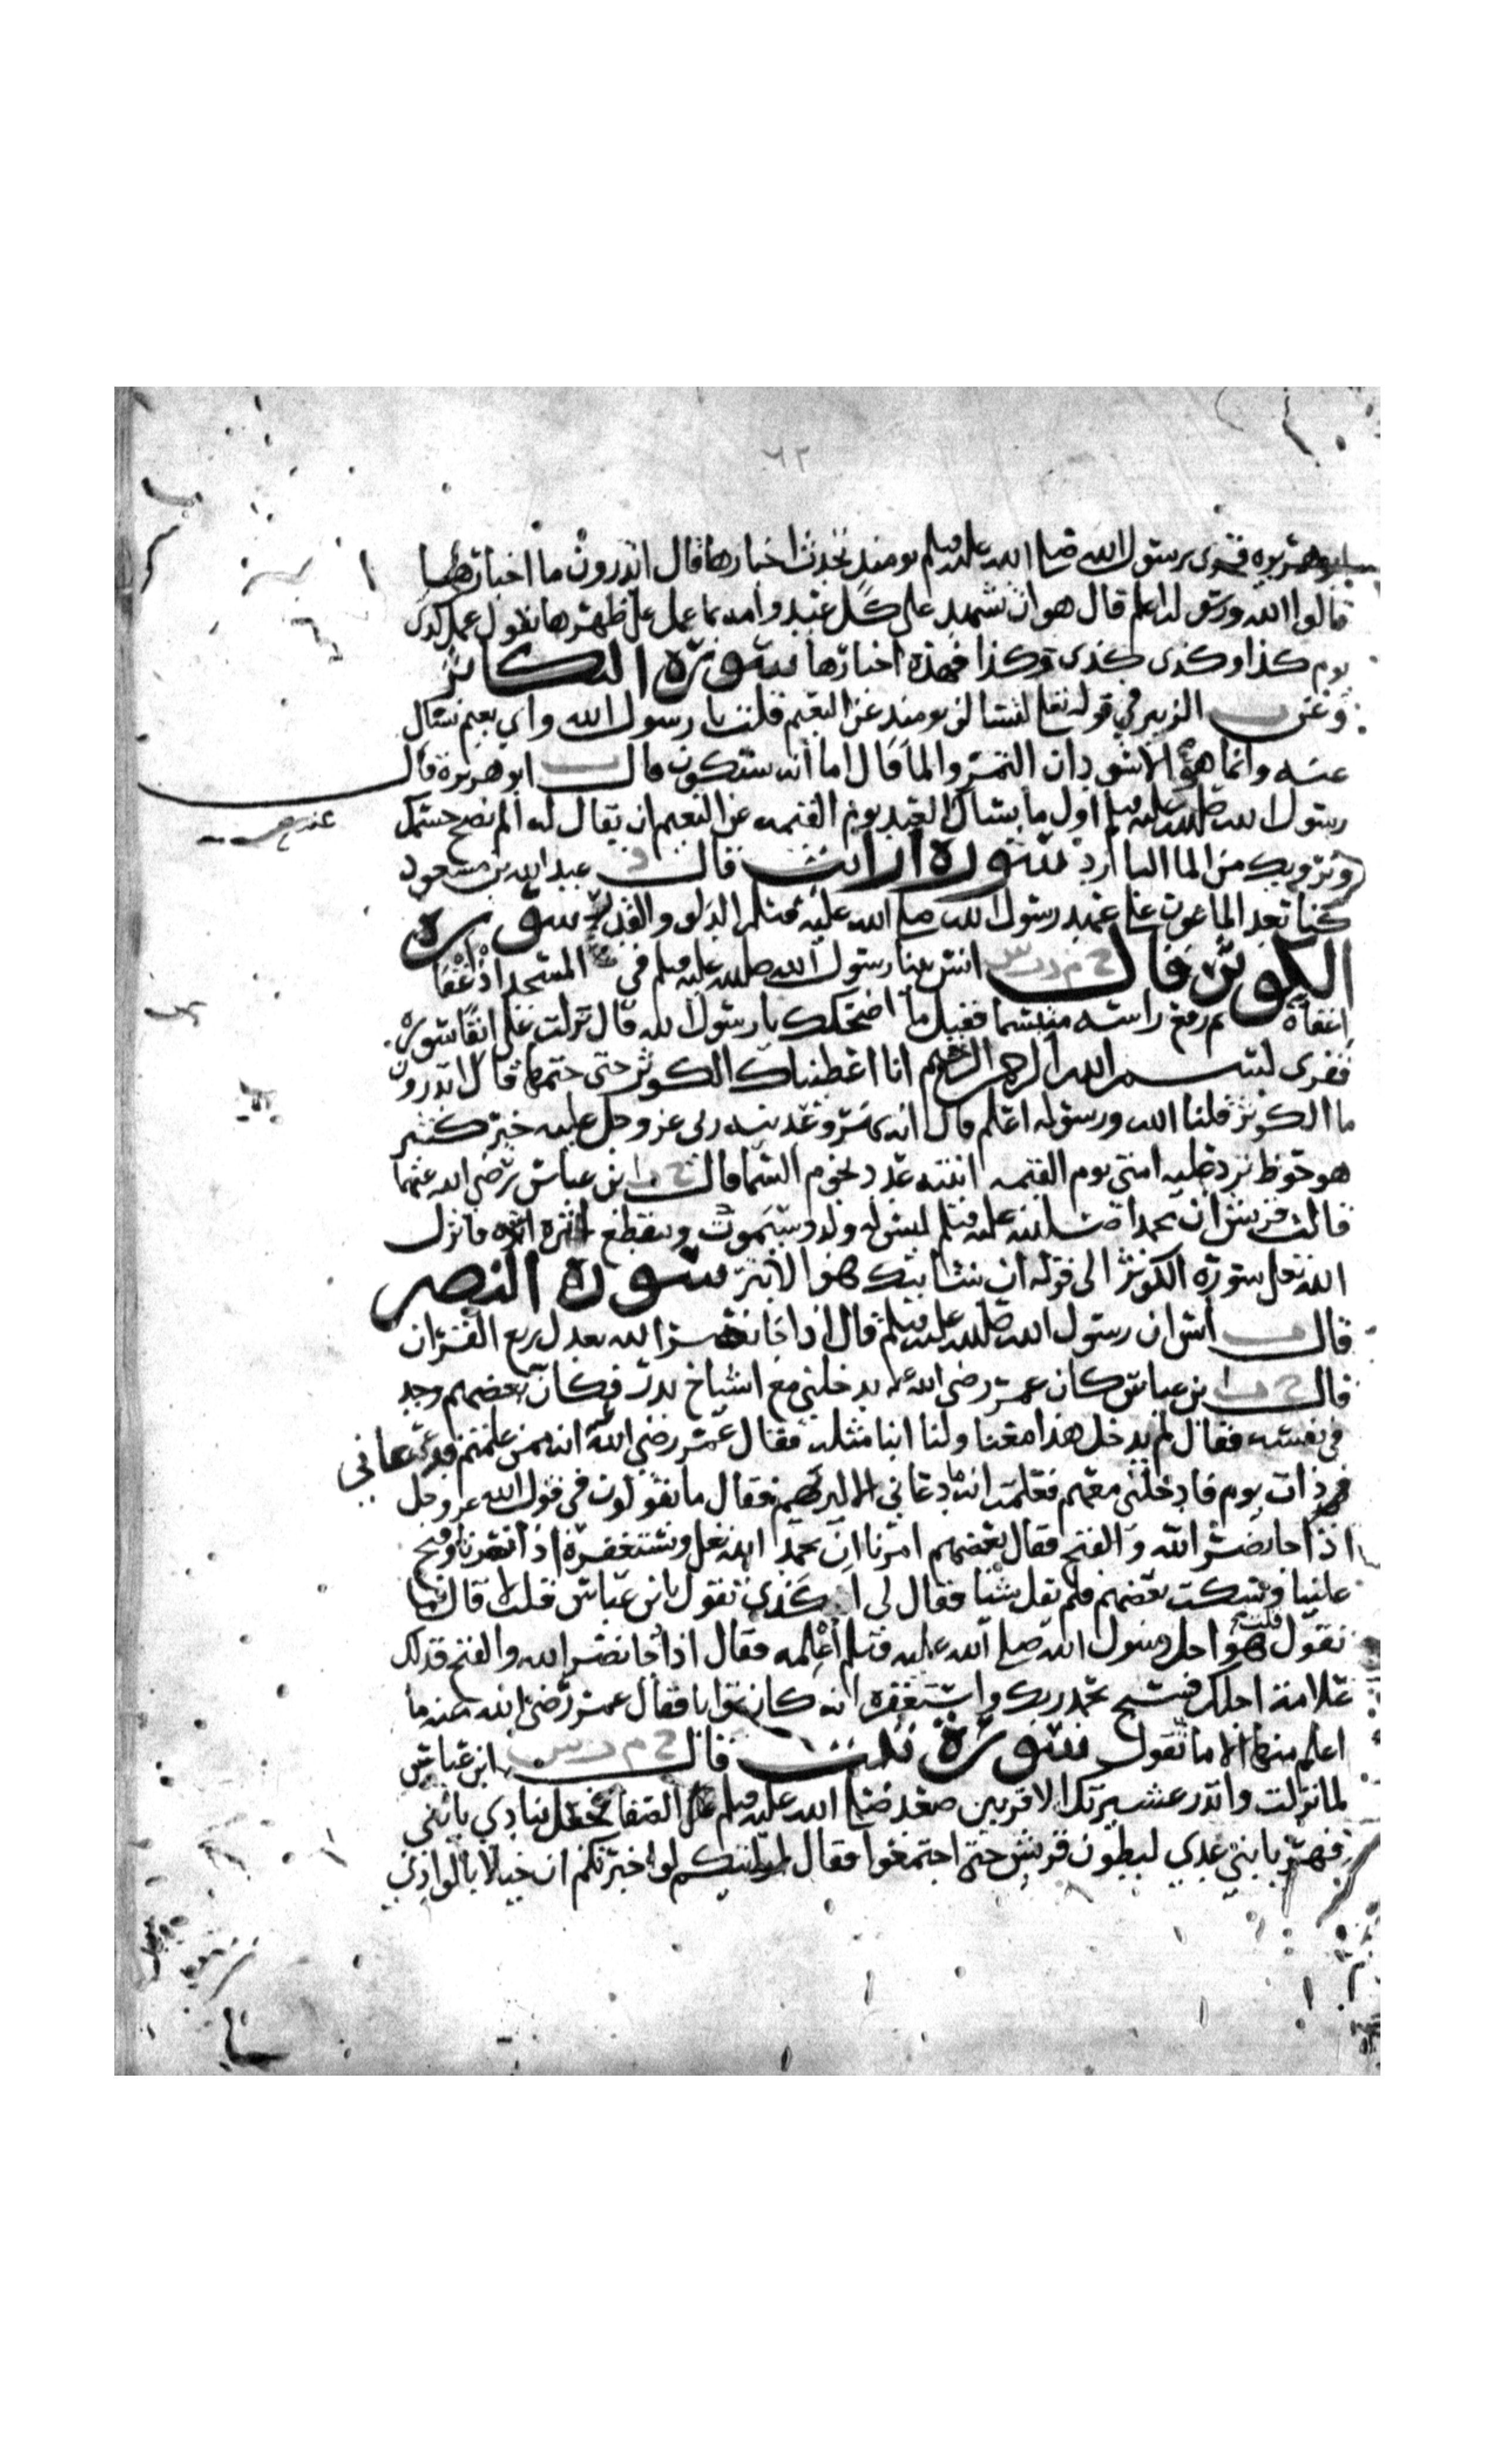 ٦٢
ابو هريره قرى رسول الله صلى الله عليه وسلم يومئذ تحدث اخبارها قال اتدرون ما اخبارها
قالوا الله ورسوله اعلم قال هو ان تشهد على كل عبد وامه بما عمل على ظهرها تقول عمل كذى
يوم كذا وكذى كذى وكذا فهذه اخبارها سورة التكاثر
وعن الزبير في قوله تعلى لتسالن يومئذ عن النعيم قلت يا رسول الله واي نعيم نسال
عنه وانما هو الاسودان التمر والما قال اما انه ستكون قال ابو هريرة قال
رسول الله صلى الله عليه وسلم اول ما يسال العبد يوم القيمه عن النعيم ان يقال له الم نصح جسمك
ونرويك من الما البارد سورة ارايت قال د عبد الله بن مسعود
كنا نعد الماعون على عهد رسول الله صلى الله عليه وسلم الدلو والقدر سورة
الكوثر قال خ م د س انس بينا رسول الله صلى الله عليه وسلم في المسجد اذ اغفا
اغفاة ثم رفع راسه متبسما فقيل ما اضحكك يا رسول الله قال نزلت على انفا سورة
فقرى بسم الله الرحمن الرحيم انا اعطيناك الكوثر حتى ختمها قال اتدرون
ما الكوثر قلنا الله ورسوله اعلم قال انه نهر وعدنيه ربى عز وجل عليه خير كثير
هو حوظ ترد عليه امتى يوم القيمه انيته عدد نجوم السما قال خ بن عباس رضى الله عنهما
قالت قريش ان محمدا صلى الله عليه وسلم ليس له ولد وسيموت وينقطع اثره فانزل
الله تعلى سورة الكوثر الى قوله ان شانئك هو الابتر سورة النصر
قال انس ان رسول الله صلى الله عليه وسلم قال اذا جا نصر الله بعدل ربع القران
قال خ بن عباس كان عمر رضى الله عنه يدخلني مع اشياخ بدر فكان بعضهم وجد
في نفسه فقال لم يدخل هذا معنا ولنا ابنا مثله فقال عمر رضى الله عنه انه ممن علمتم فدعانى
ذات يوم فادخلنى معهم فعلمت انه ما دعانى الا ليريهم فقال ما تقولون في قول الله عز وجل
اذا جا نصر الله والفتح فقال بعضهم امرنا ان نحمد الله تعلى ونستغفره اذا نصرنا وفتح
علينا وسكت بعضهم فلم يقل شيا فقال لى اكذى تقول يا بن عباس قلت لا قال فما
تقول قلت هو اجل رسول الله صلى الله عليه وسلم اعلمه فقال اذا جا نصر الله والفتح فذلك
علامة اجلك فسبح بحمد ربك واستغفره انه كان توابا فقال عمر رضى الله عنه ما
اعلم منها الا ما تقول سورة تبت قال خ م د س ابن عباس
لما نزلت وانذر عشيرتك الاقربين صعد صلى الله عليه وسلم على الصفا فجعل ينادي يا بني
فهر يا بني عدي لبطون قريش حتى اجتمعوا فقال ارايتكم لو اخبرتكم ان خيلا بالوادي